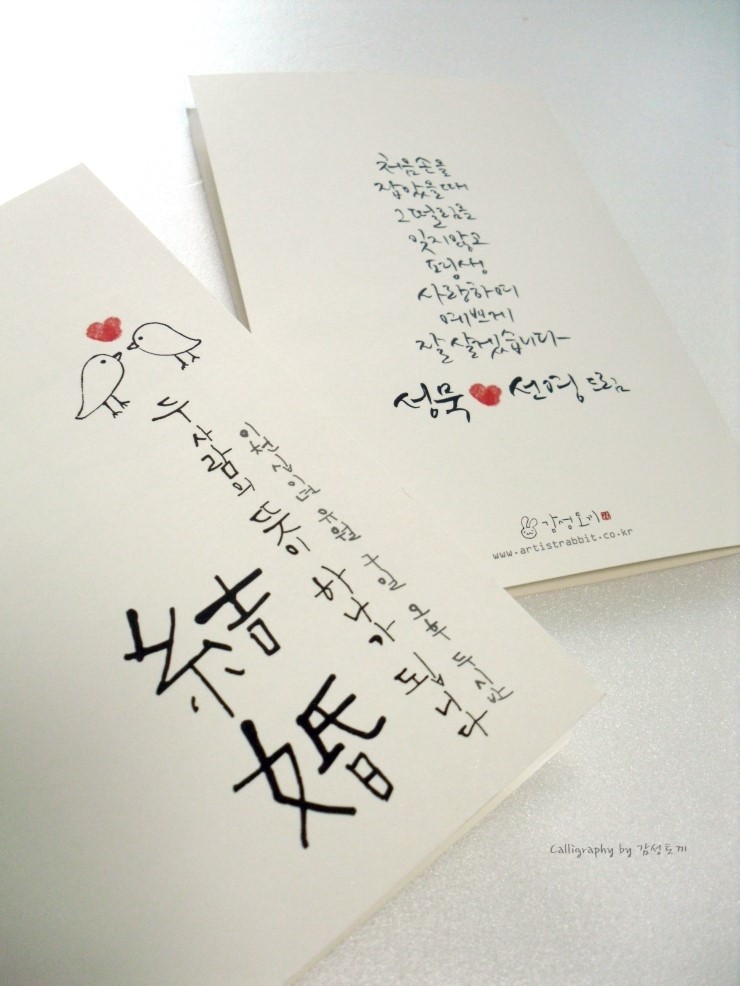 처음 손을
잡았을 때
그 떨림을
잊지 않고
평생
사랑하며
예쁘게
잘 살겠습니다~
성묵 선영 드림
감성토끼
www.artistrabbit.co.kr
結婚
두 사람의 뜻이 하나가 됩니다
이천십이년 유월 구일 오후 두시반
Calligraphy by 감성토끼